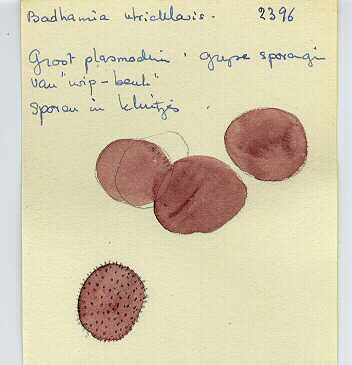 Badhamia utricularis. 2396
Groot plasmodium. grijze sporangin
van "wip-beuk"
sporen in kluitjes